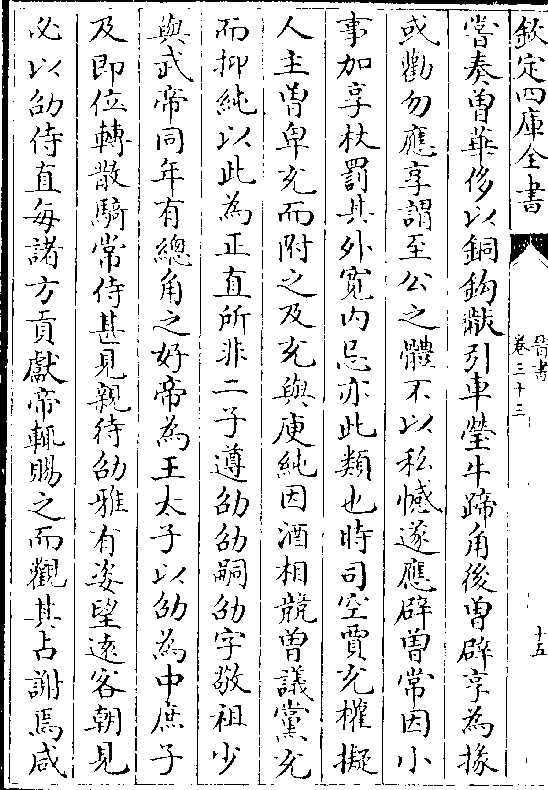 欽定四庫全書
晉書
卷三十三
十五
嘗奏曾華侈以銅鉤紖引車瑩牛蹄角後曾辟享為掾
或勸勿應享謂至公之體不以私憾遂應辟曾常因小
事加享杖罰其外寛内忌亦此類也時司空賈充權擬
人主曾卑充而附之及充與庾純因酒相競曾議黨充
而抑純以此為正直所非二子遵劭劭嗣劭字敬祖少
與武帝同年有總角之好帝為王太子以劭為中庶子
及即位轉散騎常侍甚見親待劭雅有姿望遠客朝見
必以劭侍直每諸方貢獻帝輒賜之而觀其占謝焉咸